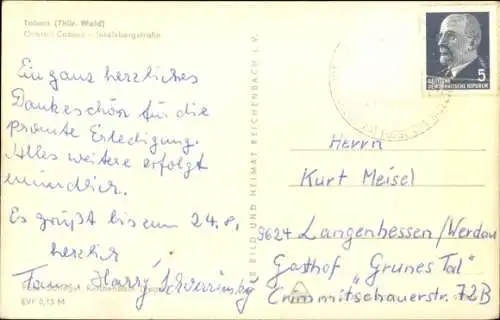 Tabarz (Thür. Wald)
Ein ganz herzliches
Dankeschön für die
promte Erledigung.
Alles weitere erfolgt
mündlich.
Es grüßt bis zum 24.8.
herzlich
Harry
EVP 0,15 M
BILD UND HEIMAT REICHENBACH i. V.
5
DEUTSCHE
DEMOKRATISCHE REPUBLIK
Herrn
Kurt Meisel
9624 Langenhessen/Werdau
Gasthof „Grünes Tal"
Crimmitschauerstr. 72B